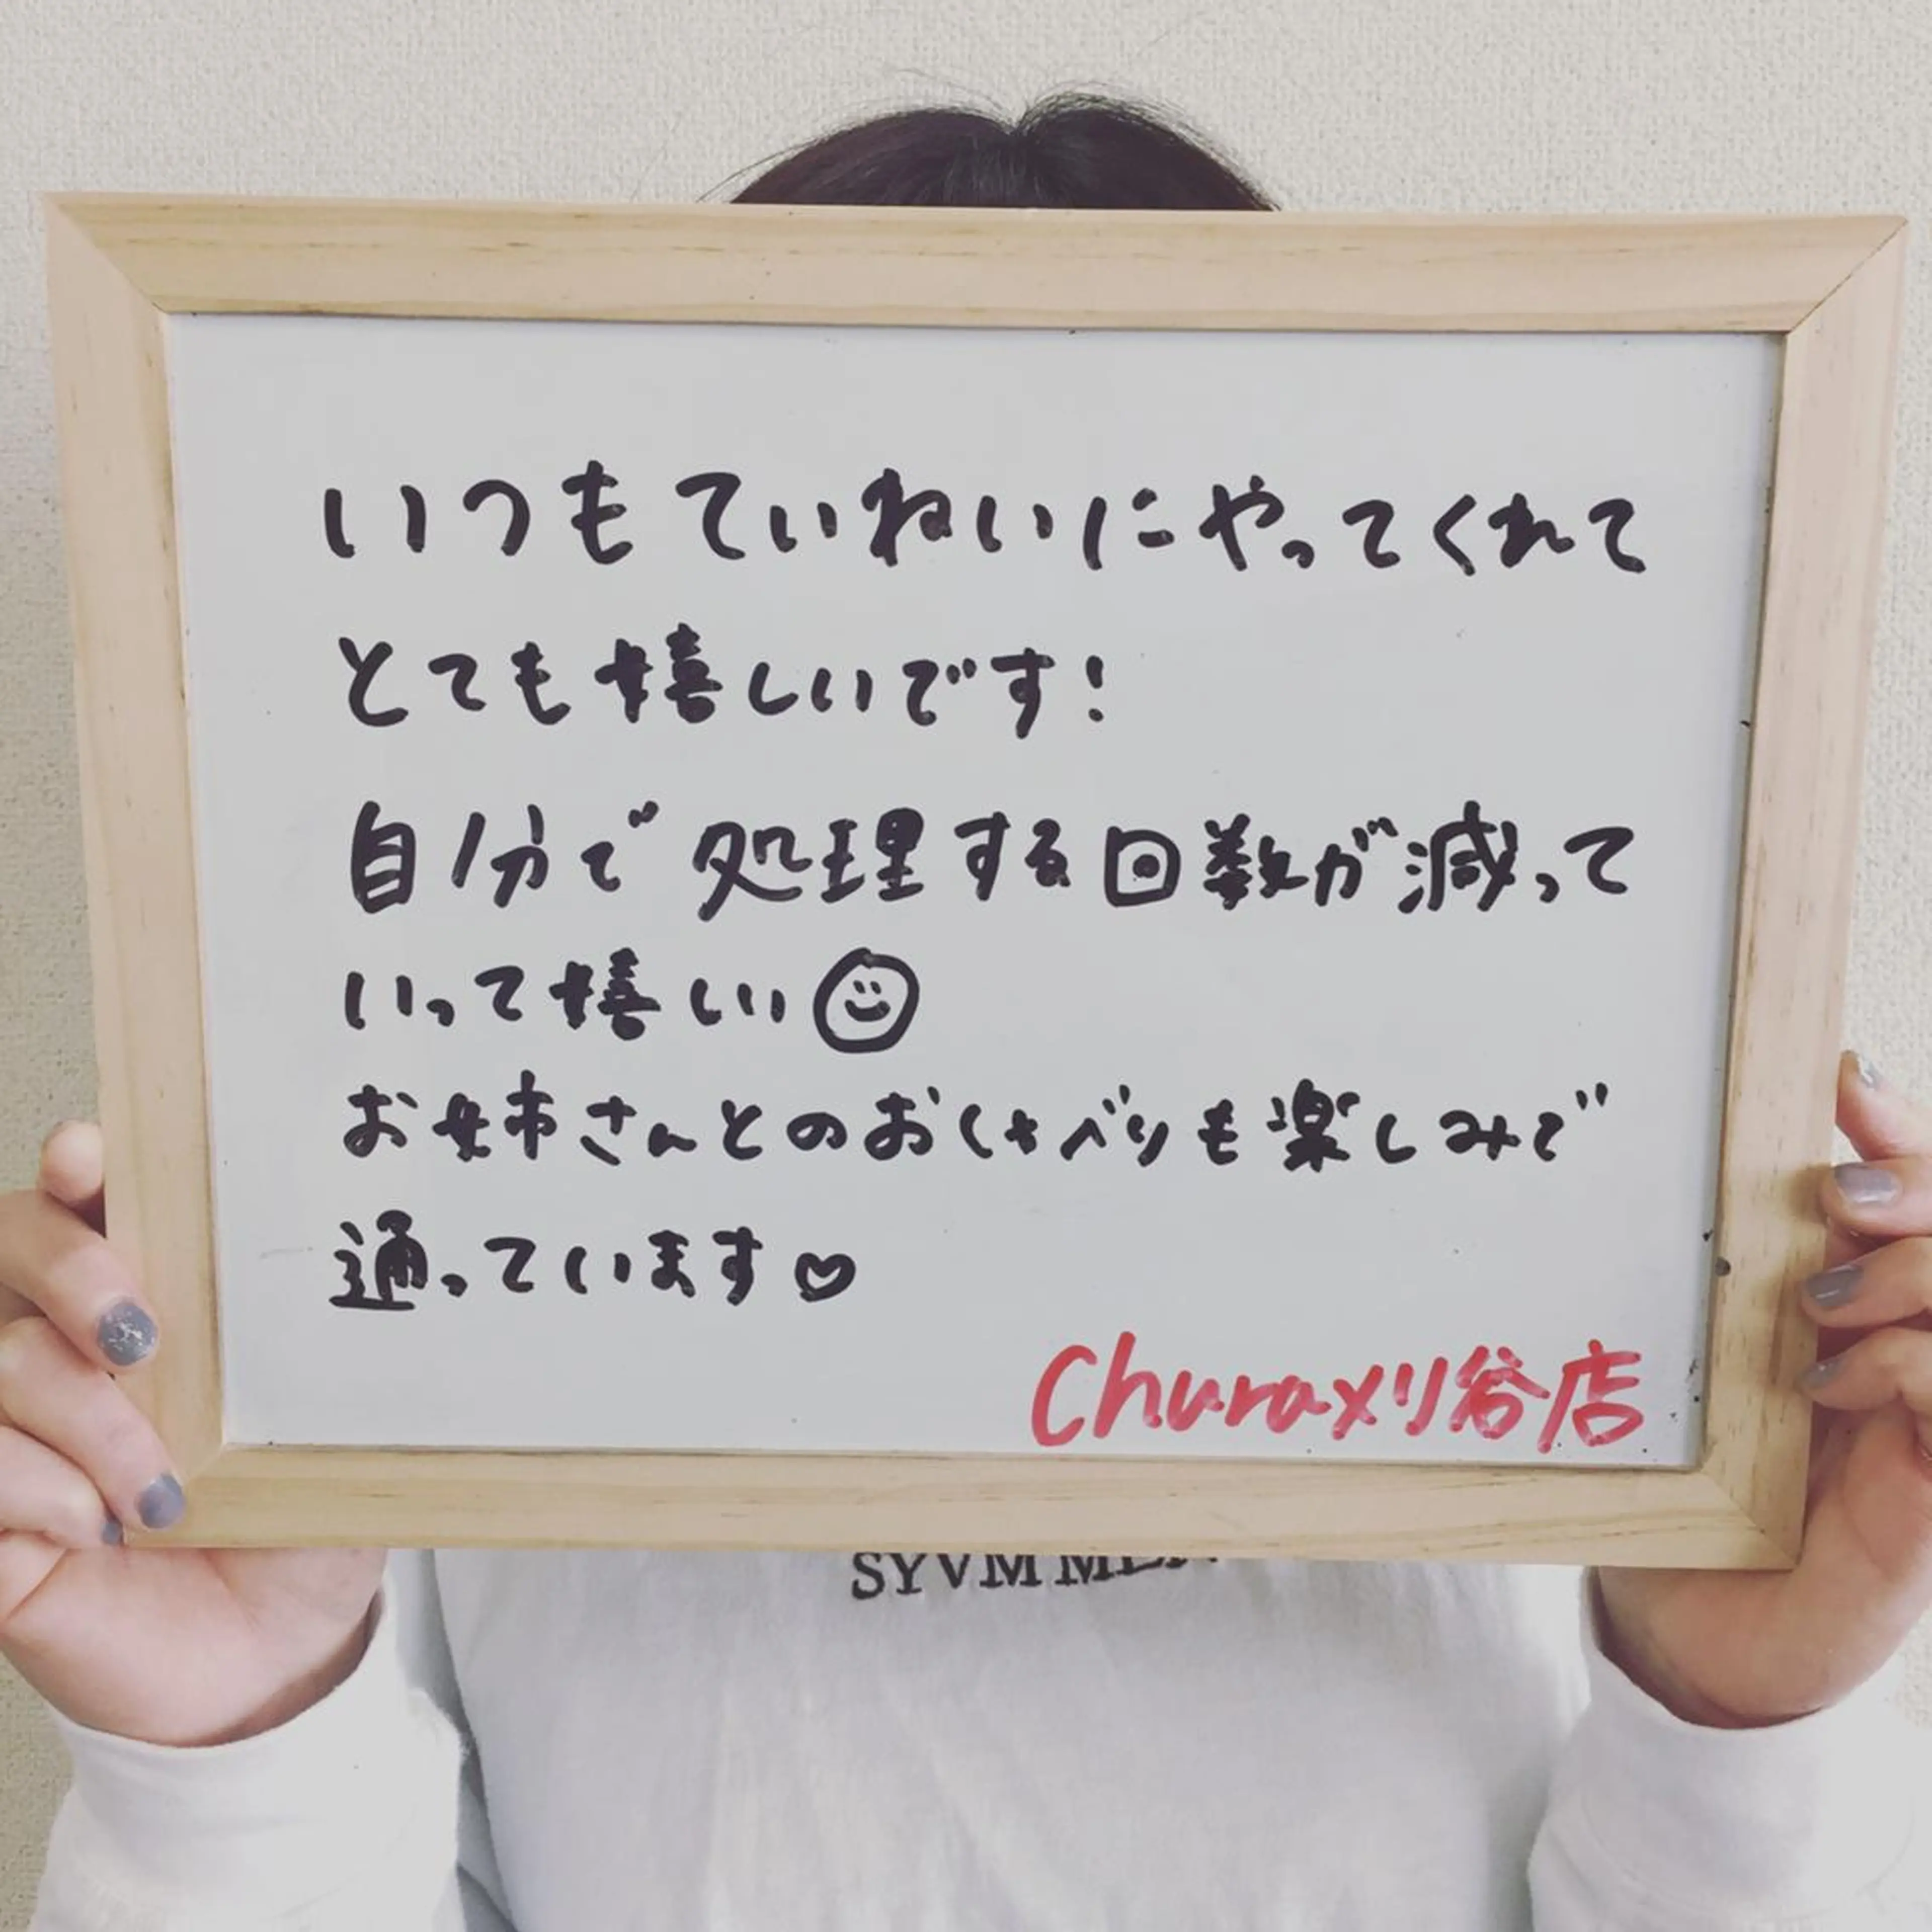 いつもていねいにやってくれて
とても嬉しいです!
自分で処理する回数が減って
いって嬉しい
お姉さんとのおしゃべりも楽しみで
通っています♡
Chura刈谷店